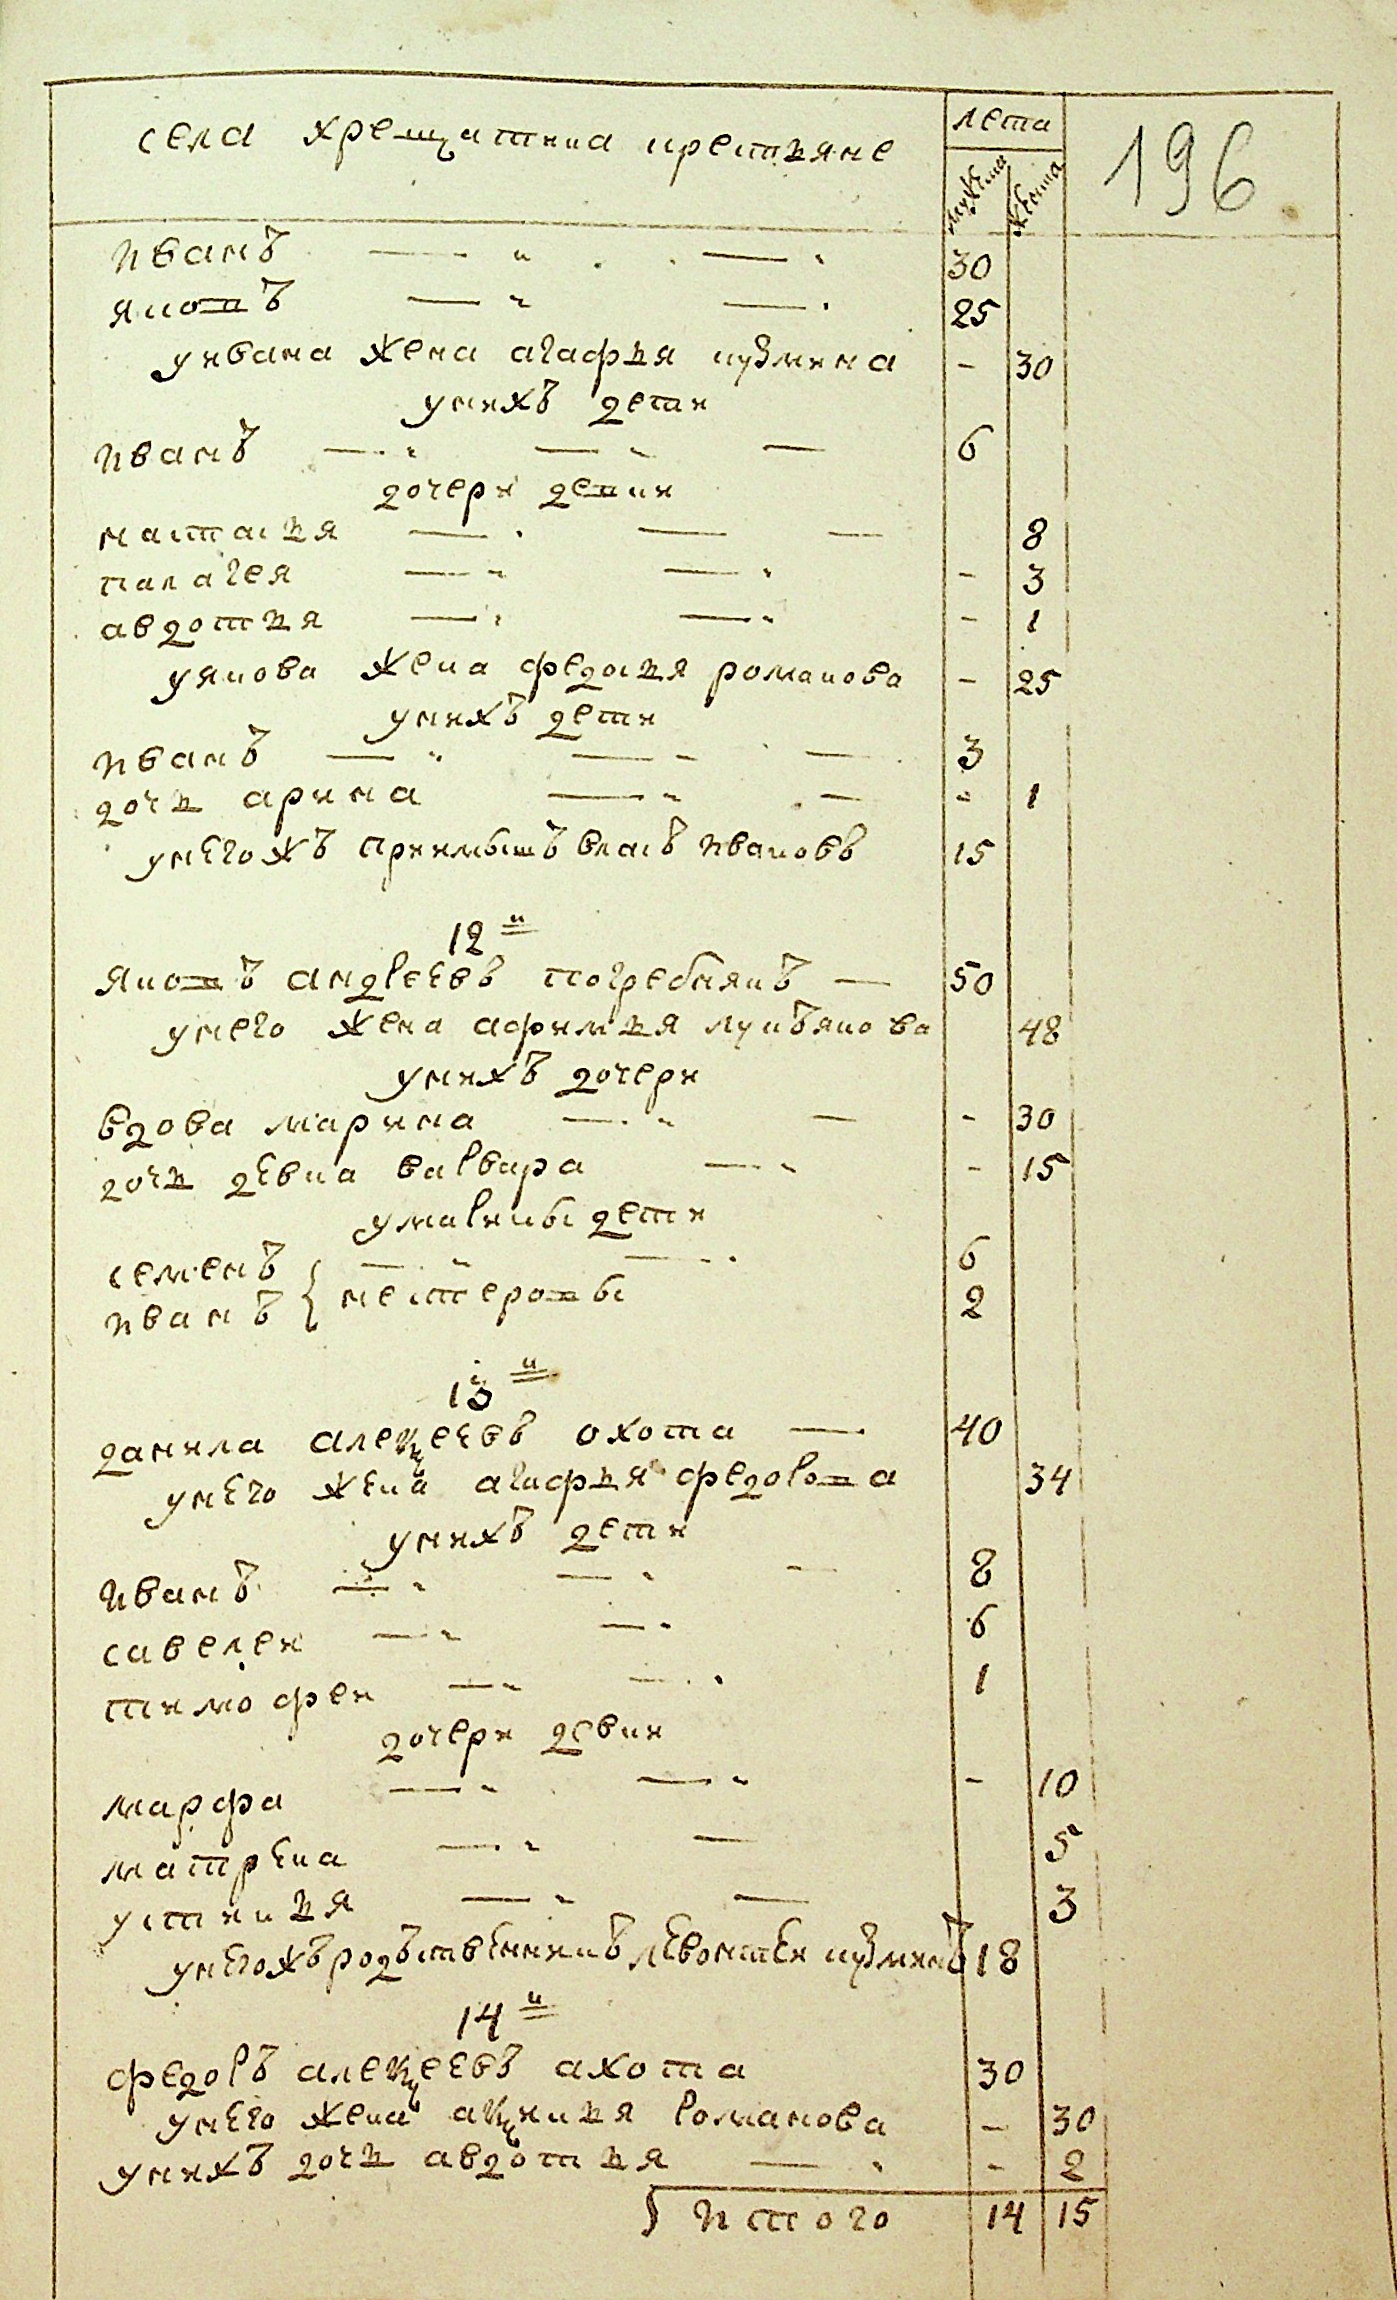 села хрещатика крестьяне
лета
мужска
женска
196
иванъ 30
яковъ 25
уивана жена агафья кузмина - 30
унихъ дети
иванъ 6
дочери девки
настасья 8
палагея - 3
авдотья - 1
уякова жена федосья романова - 25
унихъ дети
иванъ 3
дочь арина - 1
унегожъ приимышъ власъ ивановъ 15
12й
яковъ андреевъ погребнякъ 50
унего жена афимья лукьянова 48
унихъ дочери
вдова марина - 30
дочь девка варвара - 15
умарины дети
семенъ 6
иванъ } нестеровы 2
13й
данила алексеевъ охота 40
унего жена агафья федорова 34
унихъ дети
иванъ 8
савелей 6
тимофей 1
дочери девки
марфа - 10
матрена 5
устинья 3
унегожъ родъственникъ левонтей кузминъ 18
14й
федоръ алексеевъ ахота 30
унего жена аксинья романова - 30
унихъ дочь авдотья - 2
итого 14 15